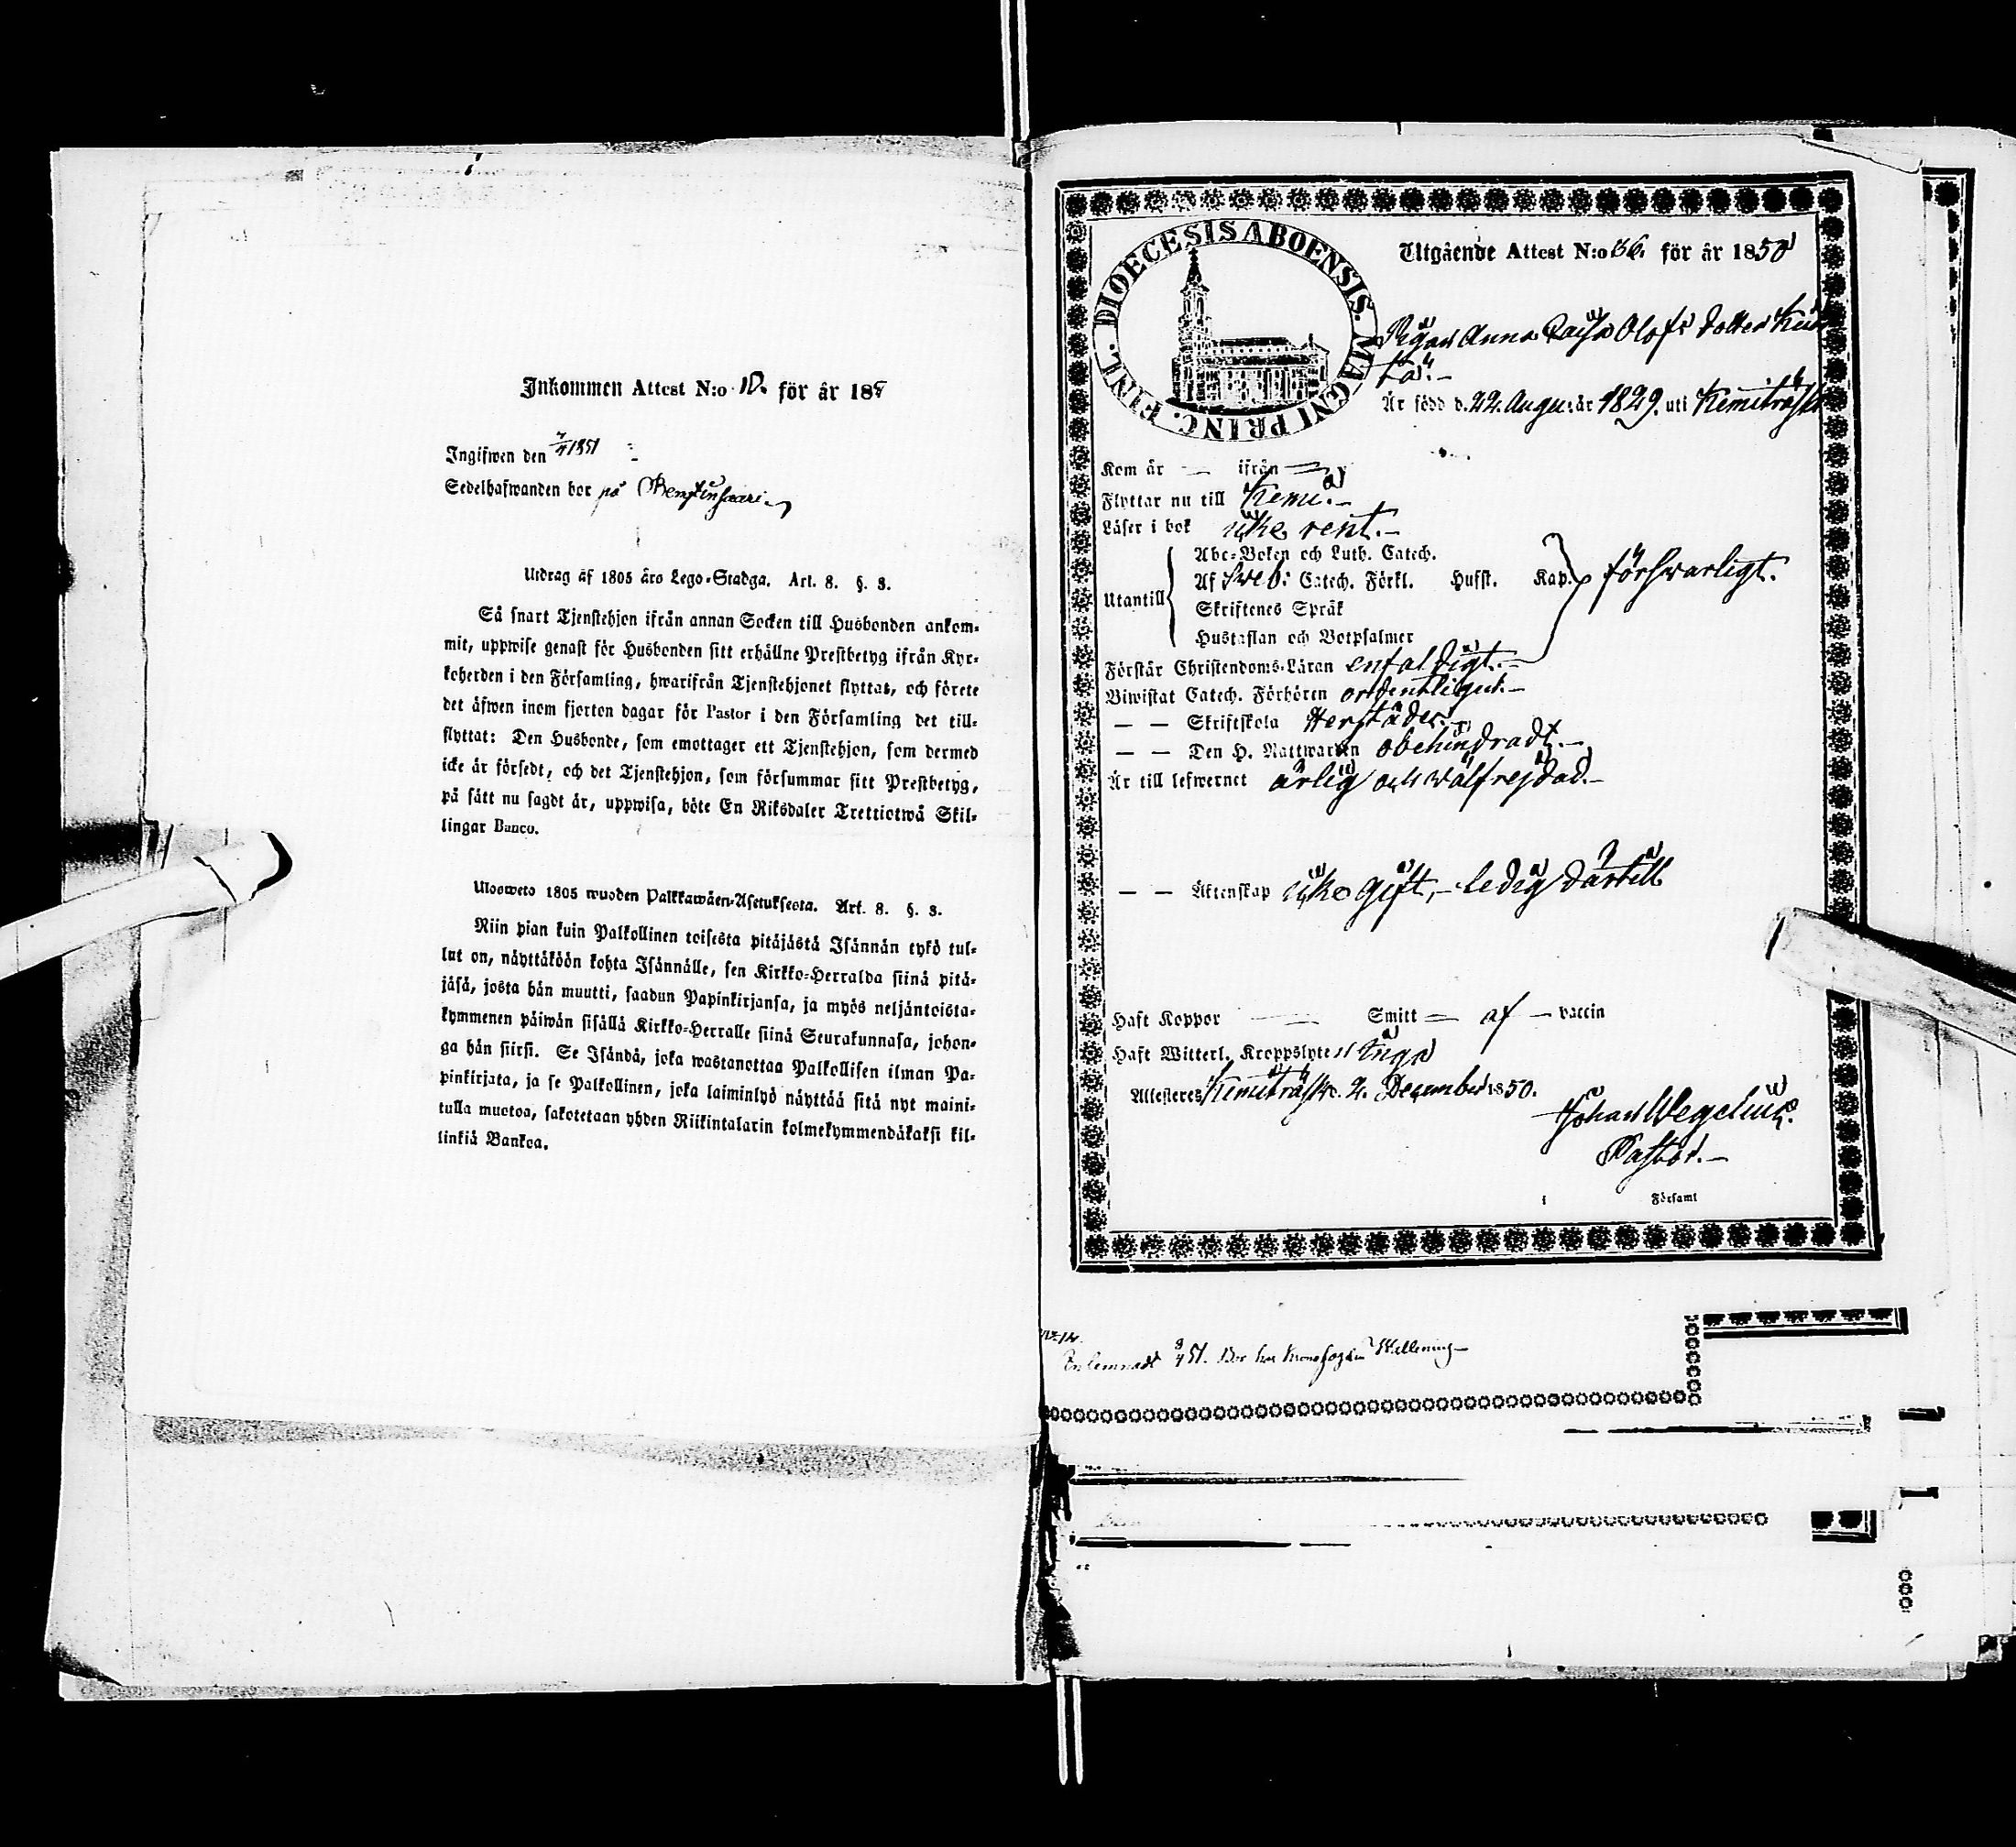 Inkommen Attest N:o 10. för år 18
Ingifwen den 7/4 1851
Sedelhafwanden bor på
Utdrag af 1805 års Lego-Stadga. Art. 8. §. 3.
Så snart Tjenstehjon ifrån annan Socken till Husbonden ankom-
mit, uppwise genast för Husbonden sitt erhållne Prestbetyg ifrån Kyr-
koherden i den Församling, hwarifrån Tjenstehjonet flyttat, och förete
det äfwen inom fjorton dagar för Pastor i den Församling det till-
flyttat: Den Husbonde, som emottager ett Tjenstehjon, som dermed
icke är försedt, och det Tjenstehjon, som försummar sitt Prestbetyg,
på sätt nu sagdt är, uppwisa, böte En Riksdaler Trettiotwå Skil-
lingar Banco.
Ulosweto 1805 wuoden Palkkawäen-Asetuksesta. Art. 8. §. 3.
Niin pian kuin Palkollinen toisesta pitäjästä Isännän tykö tul-
lut on, näyttäköön kohta Isännälle, sen Kirkko-Herralda siinä pitä-
jäsä, josta hän muutti, saadun Papinkirjansa, ja myös neljäntoista-
kymmenen päiwän sisällä Kirkko-Herralle siinä Seurakunnasa, johon-
ga hän siirsi. Se Isändä, joka wastanottaa Palkollisen ilman Pa-
pinkirjata, ja se Palkollinen, joka laiminlyö näyttää sitä nyt maini-
tulla muotoa, sakotetaan yhden Riikintalarin kolmekymmendäkaksi kil-
linkiä Bankoa.
DIOECESIS ABOENSIS. MAGNI PRINC. FINL.
Utgående Attest N:o 36. för år 1850
Pigan Anna Caisa Olofs dotter
Är född d. 22. Augu: år 1829. uti Kemiträsk
Kom år — ifrån —
Flyttar nu till Kemi.—
Läser i bok icke rent.—
Utantill
Abc-Boken och Luth. Catech.
Af Sweb: Catech. Förkl. Husst. Kap. försvarligt.
Skriftenes Språk
Hustaflan och Botpsalmer
Förstår Christendoms-Läran enfaldigt.—
Biwistat Catech. Förhören ordentligut.—
— — Skriftskola Herstädes.—
— — Den H. Nattwarden obehindradt.—
Är till lefwernet ärlig och wälfrejdad.—
— — Äktenskap icke gift,— ledig därtill
Haft Koppor — Smitt — af — vaccin
Haft Witterl. Kroppslyten Inga
Attesteres Kemiträsk d. 2. December 1850.
Johan Wegelius.
Pastor.—
i Församl
Inlemnadt 9/4 51. Bor hos Kronofogden